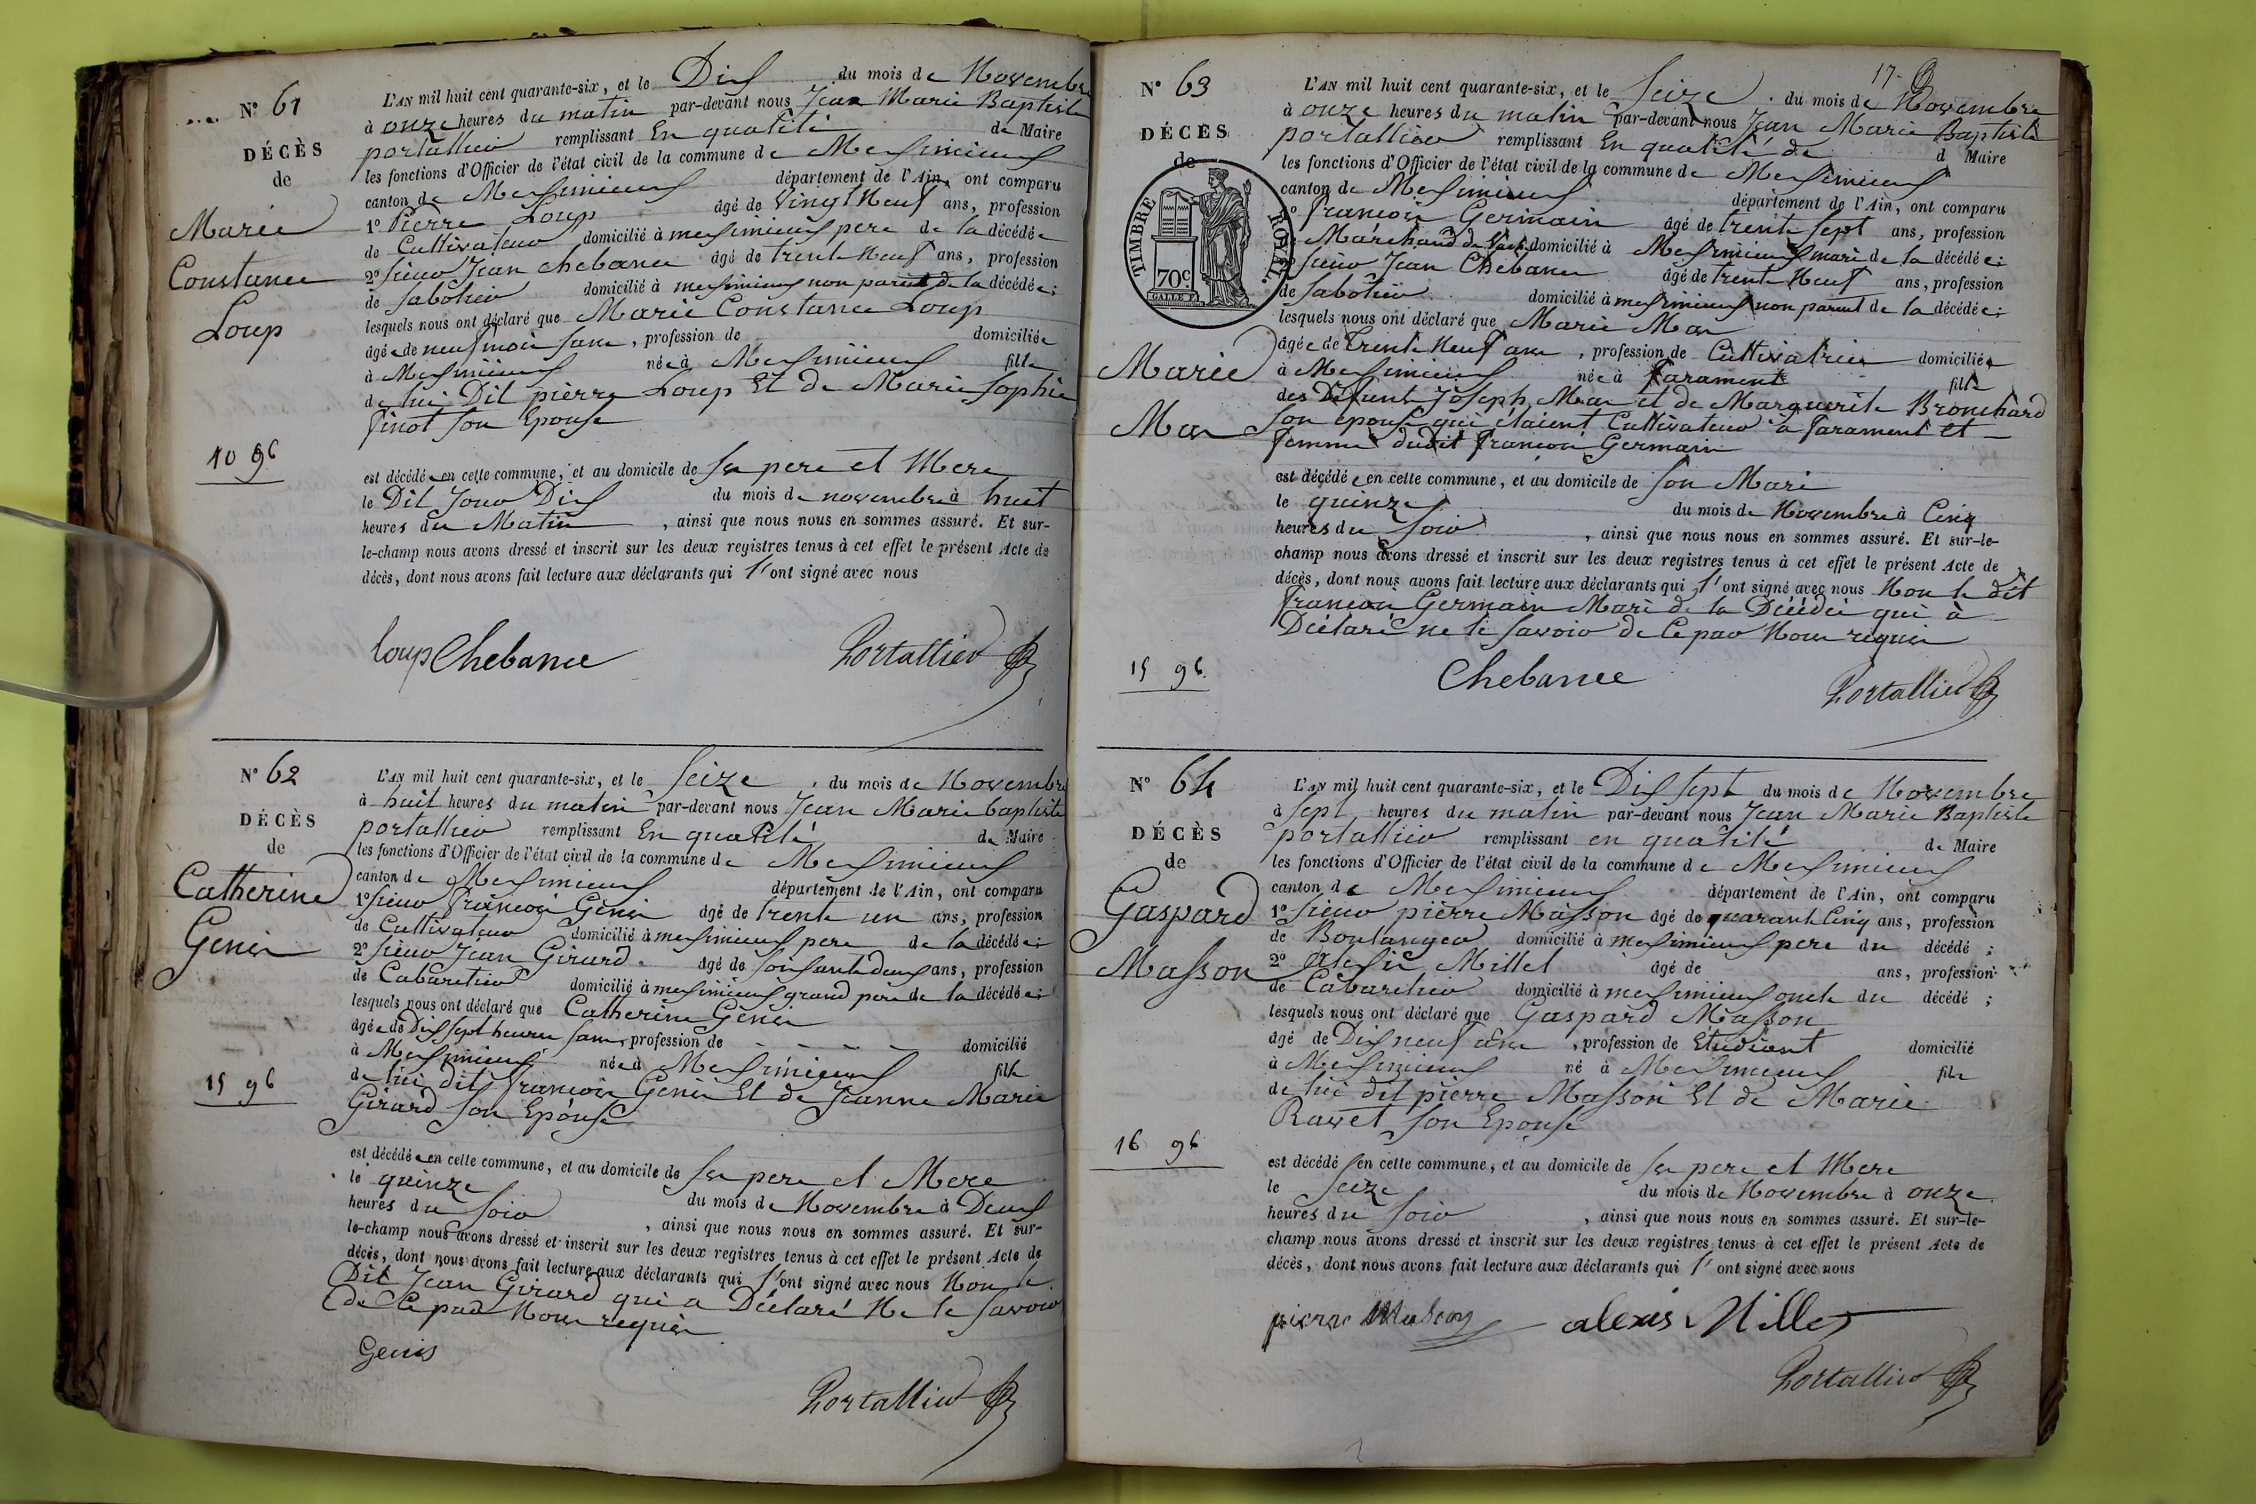 N° 61
DÉCÈS
de
Marie
Constance
Loup
10 9b
L'AN mil huit cent quarante-six, et le Dix du mois de Novembre
à onze heures du matin par-devant nous Jean Marie Baptiste
portallier remplissant En qualité de Maire
les fonctions d'Officier de l'état civil de la commune de Meximieux
canton de Meximieux département de l'Ain, ont comparu
1° Pierre Loup âgé de Vingt Neuf ans, profession
de Cultivateur domicilié à meximieux pere de la décédée
2° sieur Jean chebance âgé de trente Neuf ans, profession
de sabotier domicilié à meximieux non parent de la décédée;
lesquels nous ont déclaré que Marie Constance Loup
âgée de neuf mois sans, profession de domiciliée
à Meximieux née à Meximieux fille
de lui Dit pierre Loup Et de Marie sophie
finot son Epouse
est décédée en cette commune, et au domicile de ses pere et Mere
le Dit Jour Dix du mois de novembre à huit
heures du Matin, ainsi que nous nous en sommes assuré. Et sur-
le-champ nous avons dressé et inscrit sur les deux registres tenus à cet effet le présent Acte de
décès, dont nous avons fait lecture aux déclarants qui l'ont signé avec nous
loup Chebance Portallier
N° 62
DÉCÈS
de
Catherine
Genis
15 9b
L'AN mil huit cent quarante-six, et le Seize du mois de Novembre
à huit heures du matin par-devant nous Jean Marie baptiste
portallier remplissant En qualité de Maire
les fonctions d'Officier de l'état civil de la commune de Meximieux
canton de Meximieux département de l'Ain, ont comparu
1° sieur françois Genis âgé de trente un ans, profession
de Cultivateur domicilié à meximieux pere de la décédée;
2° sieur Jean Girard âgé de soixante deux ans, profession
de Cabaretier domicilié à meximieux grand père de la décédée;
lesquels nous ont déclaré que Catherine Genis
âgée de Dix sept heures sans, profession de - - - - domicilié
à Meximieux née à Meximieux fille
de lui dit françois Genis Et de Jeanne Marie
Girard son Epouse
est décédée en cette commune, et au domicile de ses pere et Mere
le quinze du mois de Novembre à Deux
heures du soir, ainsi que nous nous en sommes assuré. Et sur-
le-champ nous avons dressé et inscrit sur les deux registres tenus à cet effet le présent Acte de
décès, dont nous avons fait lecture aux déclarants qui l'ont signé avec nous Non le
Dit Jean Girard qui a Déclaré Ne le savoir
de Ce par Nous requis
Genis
Portallier
17.
N° 63
DÉCÈS
de
TIMBRE ROYAL
70c
Marie
Mar
15 9b.
L'AN mil huit cent quarante-six, et le Seize du mois de Novembre
à onze heures du matin par-devant nous Jean Marie Baptiste
portallier remplissant En qualité de d Maire
les fonctions d'Officier de l'état civil de la commune de Meximieux
canton de Meximieux département de l'Ain, ont comparu
françois Germain âgé de trente sept ans, profession
Marchand de domicilié à Meximieux mari de la décédée;
sieur Jean Chebance âgé de trente Neuf ans, profession
de sabotier domicilié à meximieux non parent de la décédée;
lesquels nous ont déclaré que Marie Mar
âgée de trente Neuf ans, profession de Cultivatrice domiciliée
à Meximieux née à faramens fille
des Défunt Joseph Mar et de Marguerite Bronchard
son epouse qui étaient Cultivateur à faramens et
femme dudit françois Germain
est décédée en cette commune, et au domicile de son Mari
le quinze du mois de Novembre à Cinq
heures du soir, ainsi que nous nous en sommes assuré. Et sur-le-
champ nous avons dressé et inscrit sur les deux registres tenus à cet effet le présent Acte de
décès, dont nous avons fait lecture aux déclarants qui l'ont signé avec nous Non le dit
françois Germain Mari de la Décédée qui à
Déclaré ne le savoir de Ce par Nous requis
Chebance Portallier
N° 64
DÉCÈS
de
Gaspard
Masson
16 9b
L'AN mil huit cent quarante-six, et le Dix sept du mois de Novembre
à sept heures du matin par-devant nous Jean Marie Baptiste
portallier remplissant en qualité de Maire
les fonctions d'Officier de l'état civil de la commune de Meximieux
canton de Meximieux département de l'Ain, ont comparu
1° sieur pierre Masson âgé de quarante Cinq ans, profession
de Boulanger domicilié à meximieux pere du décédé;
2° alexis Millet âgé de ans, profession
de Cabaretier domicilié à meximieux oncle du décédé;
lesquels nous ont déclaré que Gaspard Masson
âgé de Dix neuf ans, profession de Etudiant domicilié
à Meximieux né à Meximieux fils
de lui dit pierre Masson Et de Marie
Ravet son Epouse
est décédé en cette commune, et au domicile de ses pere et Mere
le seize du mois de Novembre à onze
heures du soir, ainsi que nous nous en sommes assuré. Et sur-le-
champ nous avons dressé et inscrit sur les deux registres tenus à cet effet le présent Acte de
décès, dont nous avons fait lecture aux déclarants qui l'ont signé avec nous
pierre Masson alexis Millet
Portallier